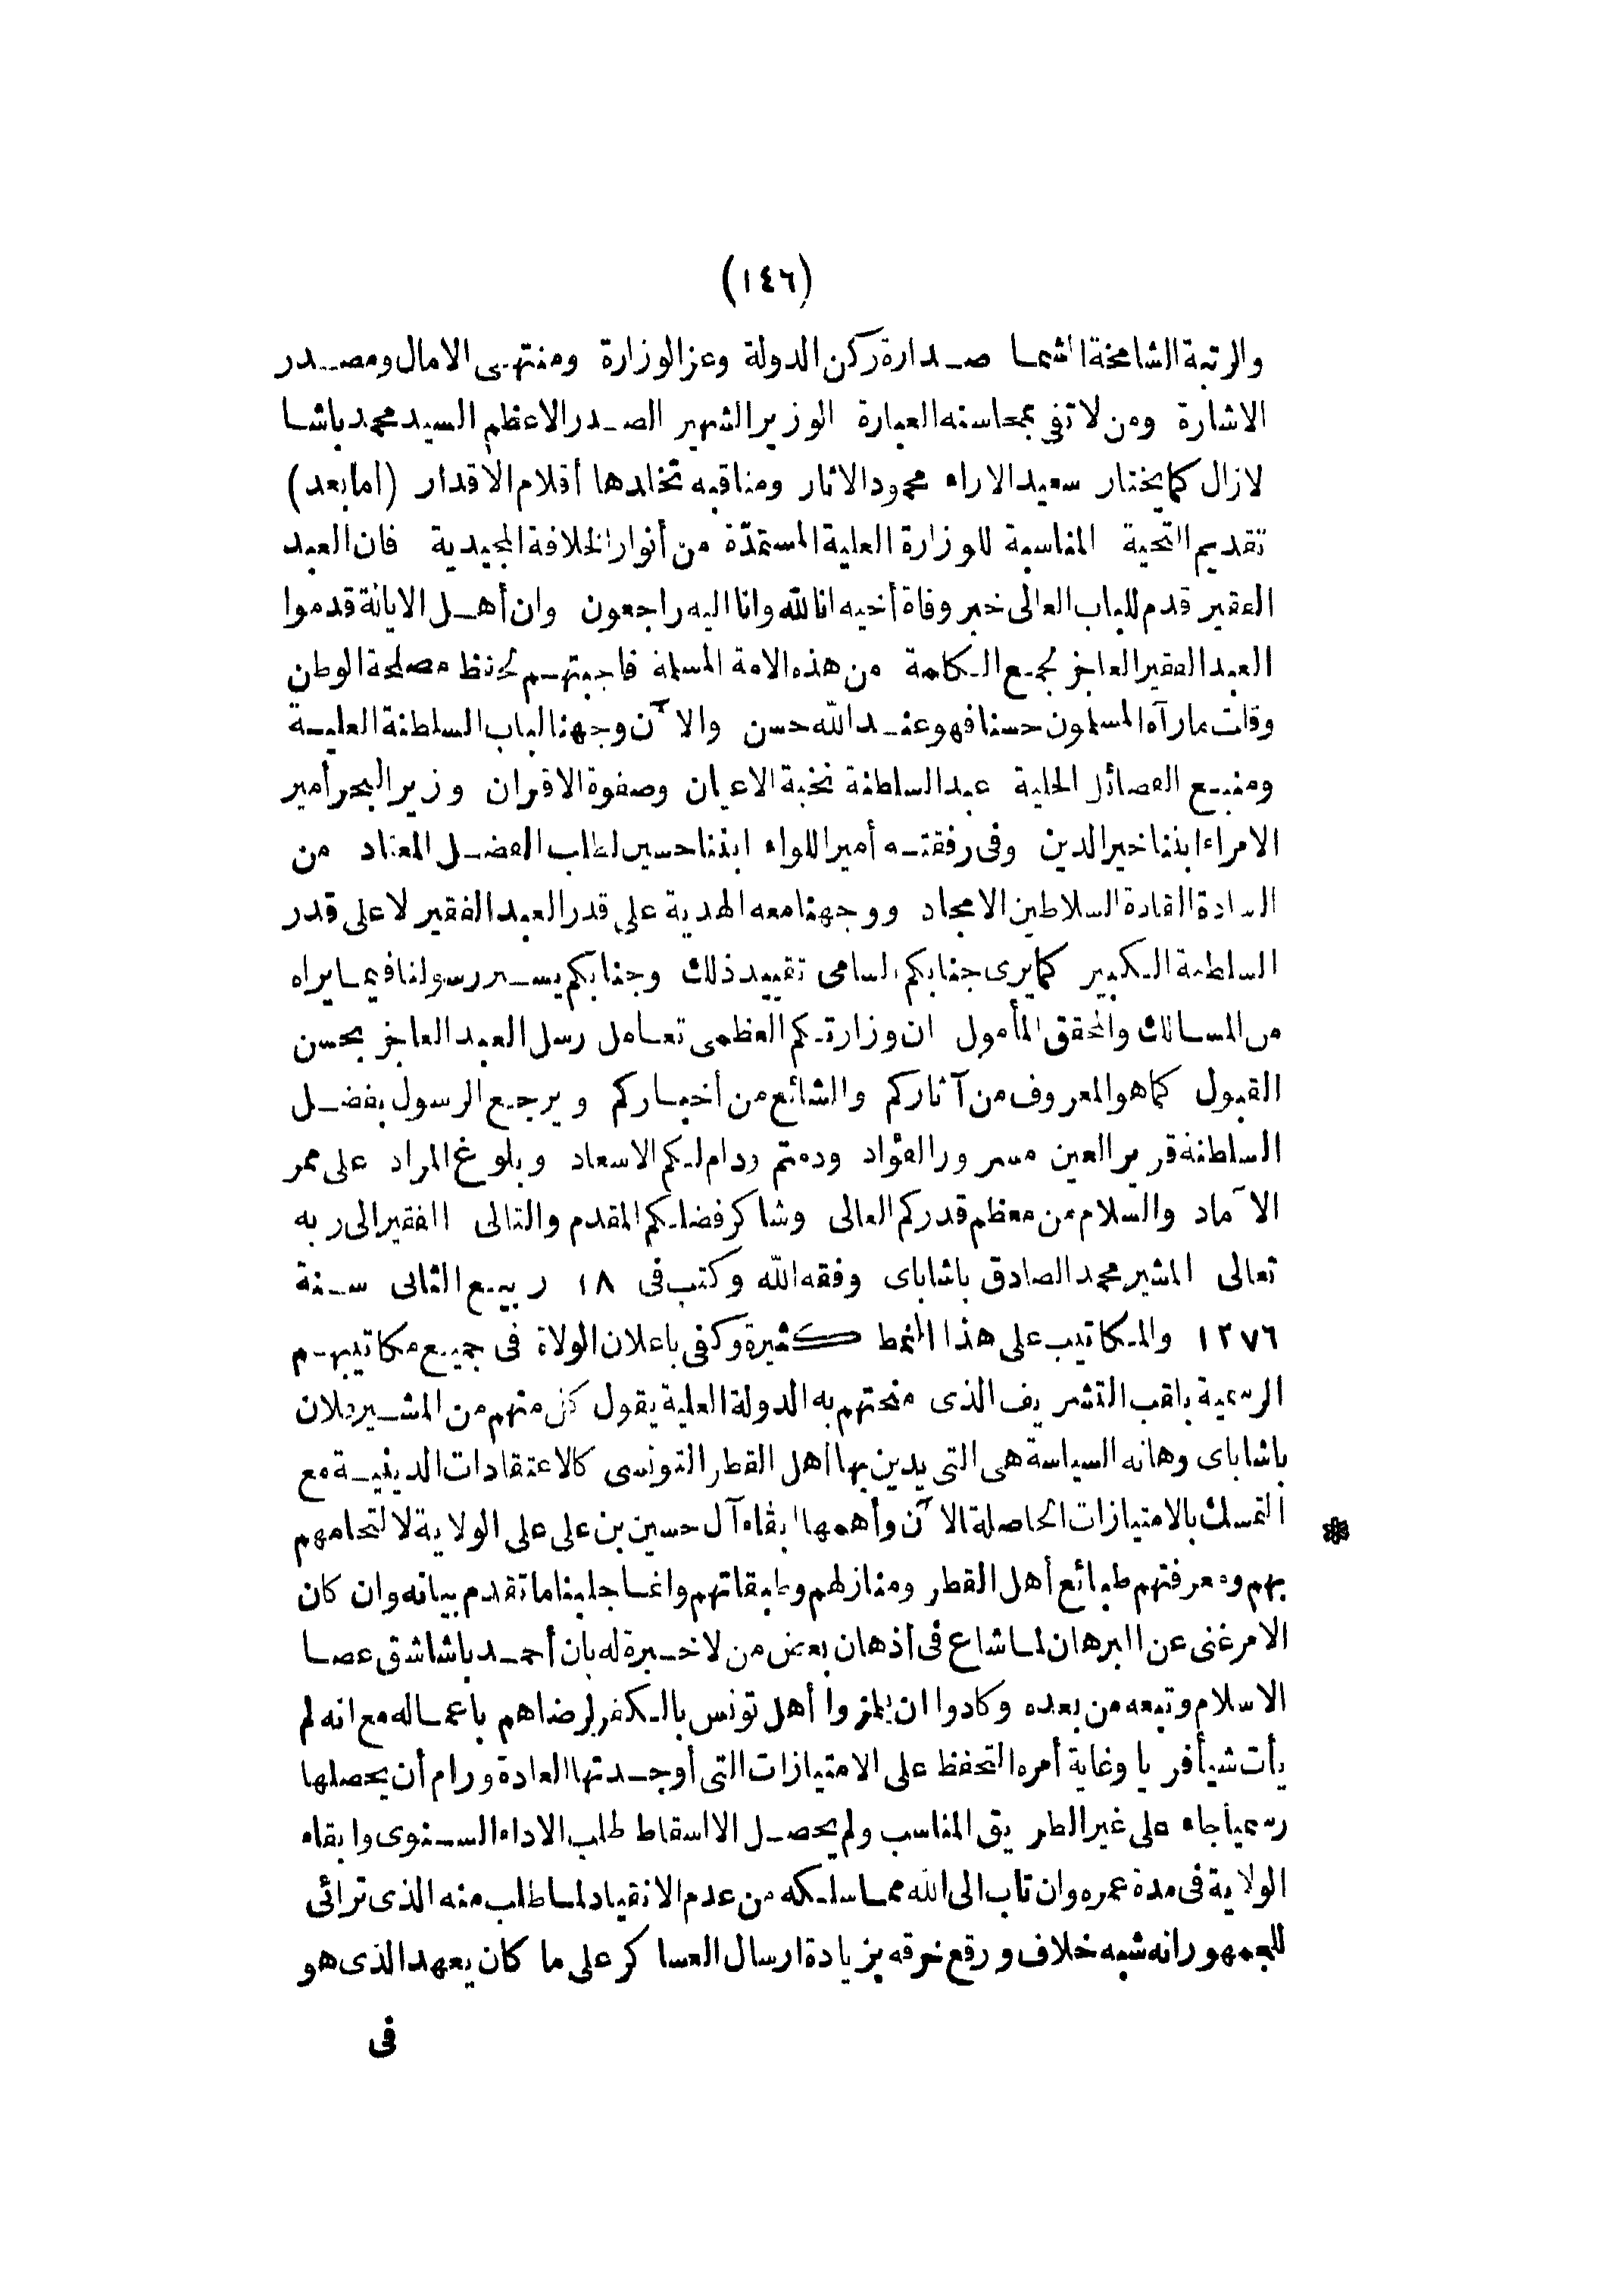 (١٤٦)
والرتبة الشامخة الشما صدارة ركن الدولة وعز الوزارة ومنتهى الامال ومصدر
الاشارة ومن لا تفى بمحاسنه العبارة الوزير الشهير الصدر الاعظم السيد محمد باشا
لازال كما يختار سعيد الاراء محمود الاثار ومناقبه تخلدها أقلام الاقدار (أما بعد)
تقديم التحية المناسبة للوزارة العلية المستمدّة من أنوار الخلافة المجيدية فان العبد
الفقير قدم للباب العالى خبر وفاة أخيه انا لله وانا اليه راجعون وان أهل الايالة قدموا
العبد الفقير العاجز لجمع الكلمة من هذه الامة المسلمة فاجبتهم لحفظ مصلحة الوطن
وقلت ما رآه المسلمون حسنا فهو عند الله حسن والآن وجهنا لباب السلطنة العلية
ومنبع الفضائل الجلية عبد السلطنة نخبة الاعيان وصفوة الاقران وزير البحر أمير
الامراء ابننا خير الدين وفى رفقته أمير اللواء ابننا حسين لطلب الفضل المعتاد من
السادة القادة السلاطين الامجاد ووجهنا معه الهدية على قدر العبد الفقير لا على قدر
السلطنة الكبير كما يرى جنابكم السامى تقييد ذلك وجنابكم يسر رسولنا فيما يراه
من المسالك والمحقق المأمول ان وزارتكم العظمى تعامل رسل العبد العاجز بحسن
القبول كما هو المعروف من آثاركم والشائع من أخباركم ويرجع الرسول بفضل
السلطنة قرير العين مسرور الفؤاد ودمتم ودام لكم الاسعاد وبلوغ المراد على ممر
الآماد والسلام من معظم قدركم العالى وشاكر فضلكم المقدم والتالى الفقير الى ربه
تعالى المشير محمد الصادق باشاباى وفقه الله وكتب فى ١٨ ربيع الثانى سنة
١٢٧٦ والمكاتيب على هذا النمط كثيرة وكفى باعلان الولاة فى جميع مكاتيبهم
الرسمية بلقب التشريف الذى منحتهم به الدولة العلية يقول كل منهم من المشير فلان
باشاباى وهاته السياسة هى التى يدين بها أهل القطر التونسى كالاعتقادات الدينية مع
* التمسك بالامتيازات الحاصلة الآن وأهمها ابقاء آل حسين بن على على الولاية لالتحامهم
بهم ومعرفتهم طبائع أهل القطر ومنازلهم وطبقاتهم وانما جلبنا ما تقدم بيانه وان كان
الامر غنى عن البرهان لما شاع فى أذهان بعض من لا خبرة له بان أحمد باشا شق عصا
الاسلام وتبعه من بعده وكادوا ان يلمزوا أهل تونس بالكفر لرضاهم باعماله مع انه لم
يأت شيأ فريا وغاية أمره التحفظ على الامتيازات التى أوجدتها العادة ورام أن يحصلها
رسميا جاء على غير الطريق المناسب ولم يحصل الا اسقاط طلب الاداء السنوى وابقاء
الولاية فى مدة عمره وان تاب الى الله مما سلكه من عدم الانقياد لما طلب منه الذى ترائى
للجمهور انه شبه خلاف ورقع خرقه بزيادة ارسال العساكر على ما كان يعهد الذى هو
فى